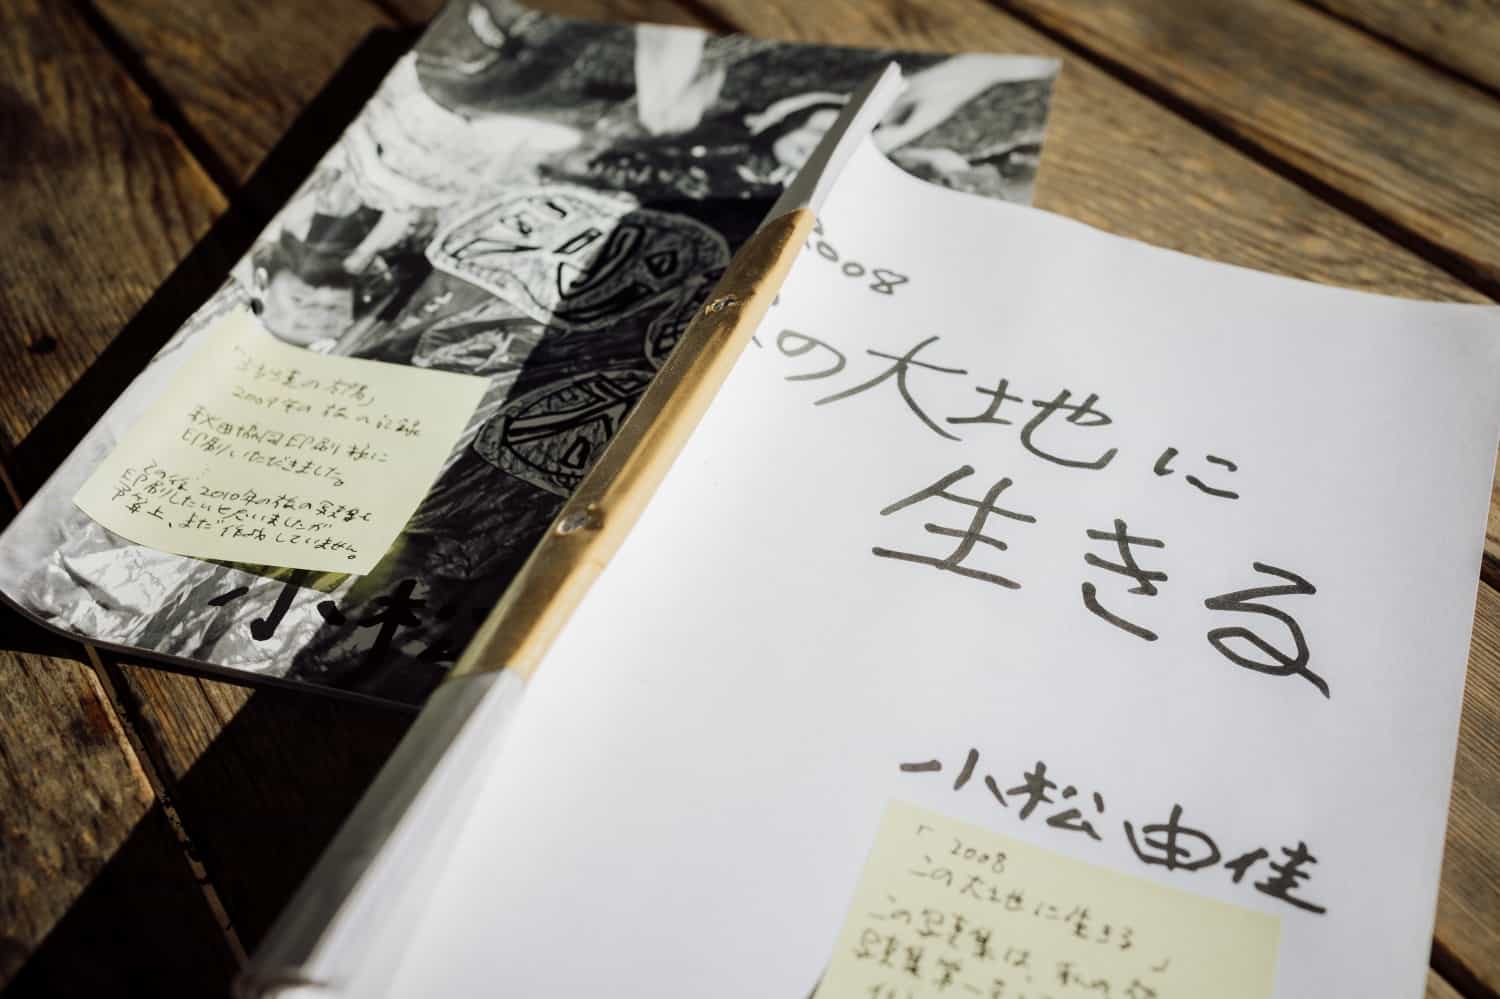 2009年の旅の記録
秋田協同印刷様に
印刷いただきました。
この後、2010年の旅の写真も
印刷したいと思いましたが
予算上、まだ作成していません。
小松
2008
の大地に
生きる
小松由佳
「2008
この大地に生きる」
この写真集は、私の
写真集第一